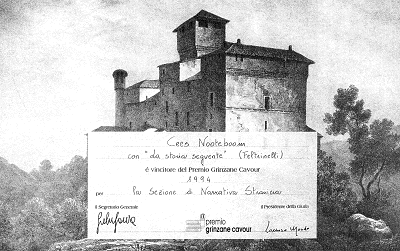 Cees Nooteboom
con "La storia seguente" (Feltrinelli)
è vincitore del Premio Grinzane Cavour
1994
per la Sezione di Narrativa Straniera
Il Segretario Generale
Il Presidente della Giuria
premio
grinzane cavour